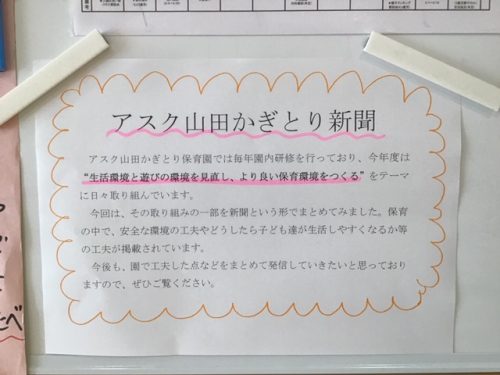 アスク山田かぎとり新聞
アスク山田かぎとり保育園では毎年園内研修を行っており、今年度は
“生活環境と遊びの環境を見直し、より良い保育環境をつくる”をテーマ
に日々取り組んでいます。
今回は、その取り組みの一部を新聞という形でまとめてみました。保育
の中で、安全な環境の工夫やどうしたら子ども達が生活しやすくなるか等
の工夫が掲載されています。
今後も、園で工夫した点などをまとめて発信していきたいと思っており
ますので、ぜひご覧ください。